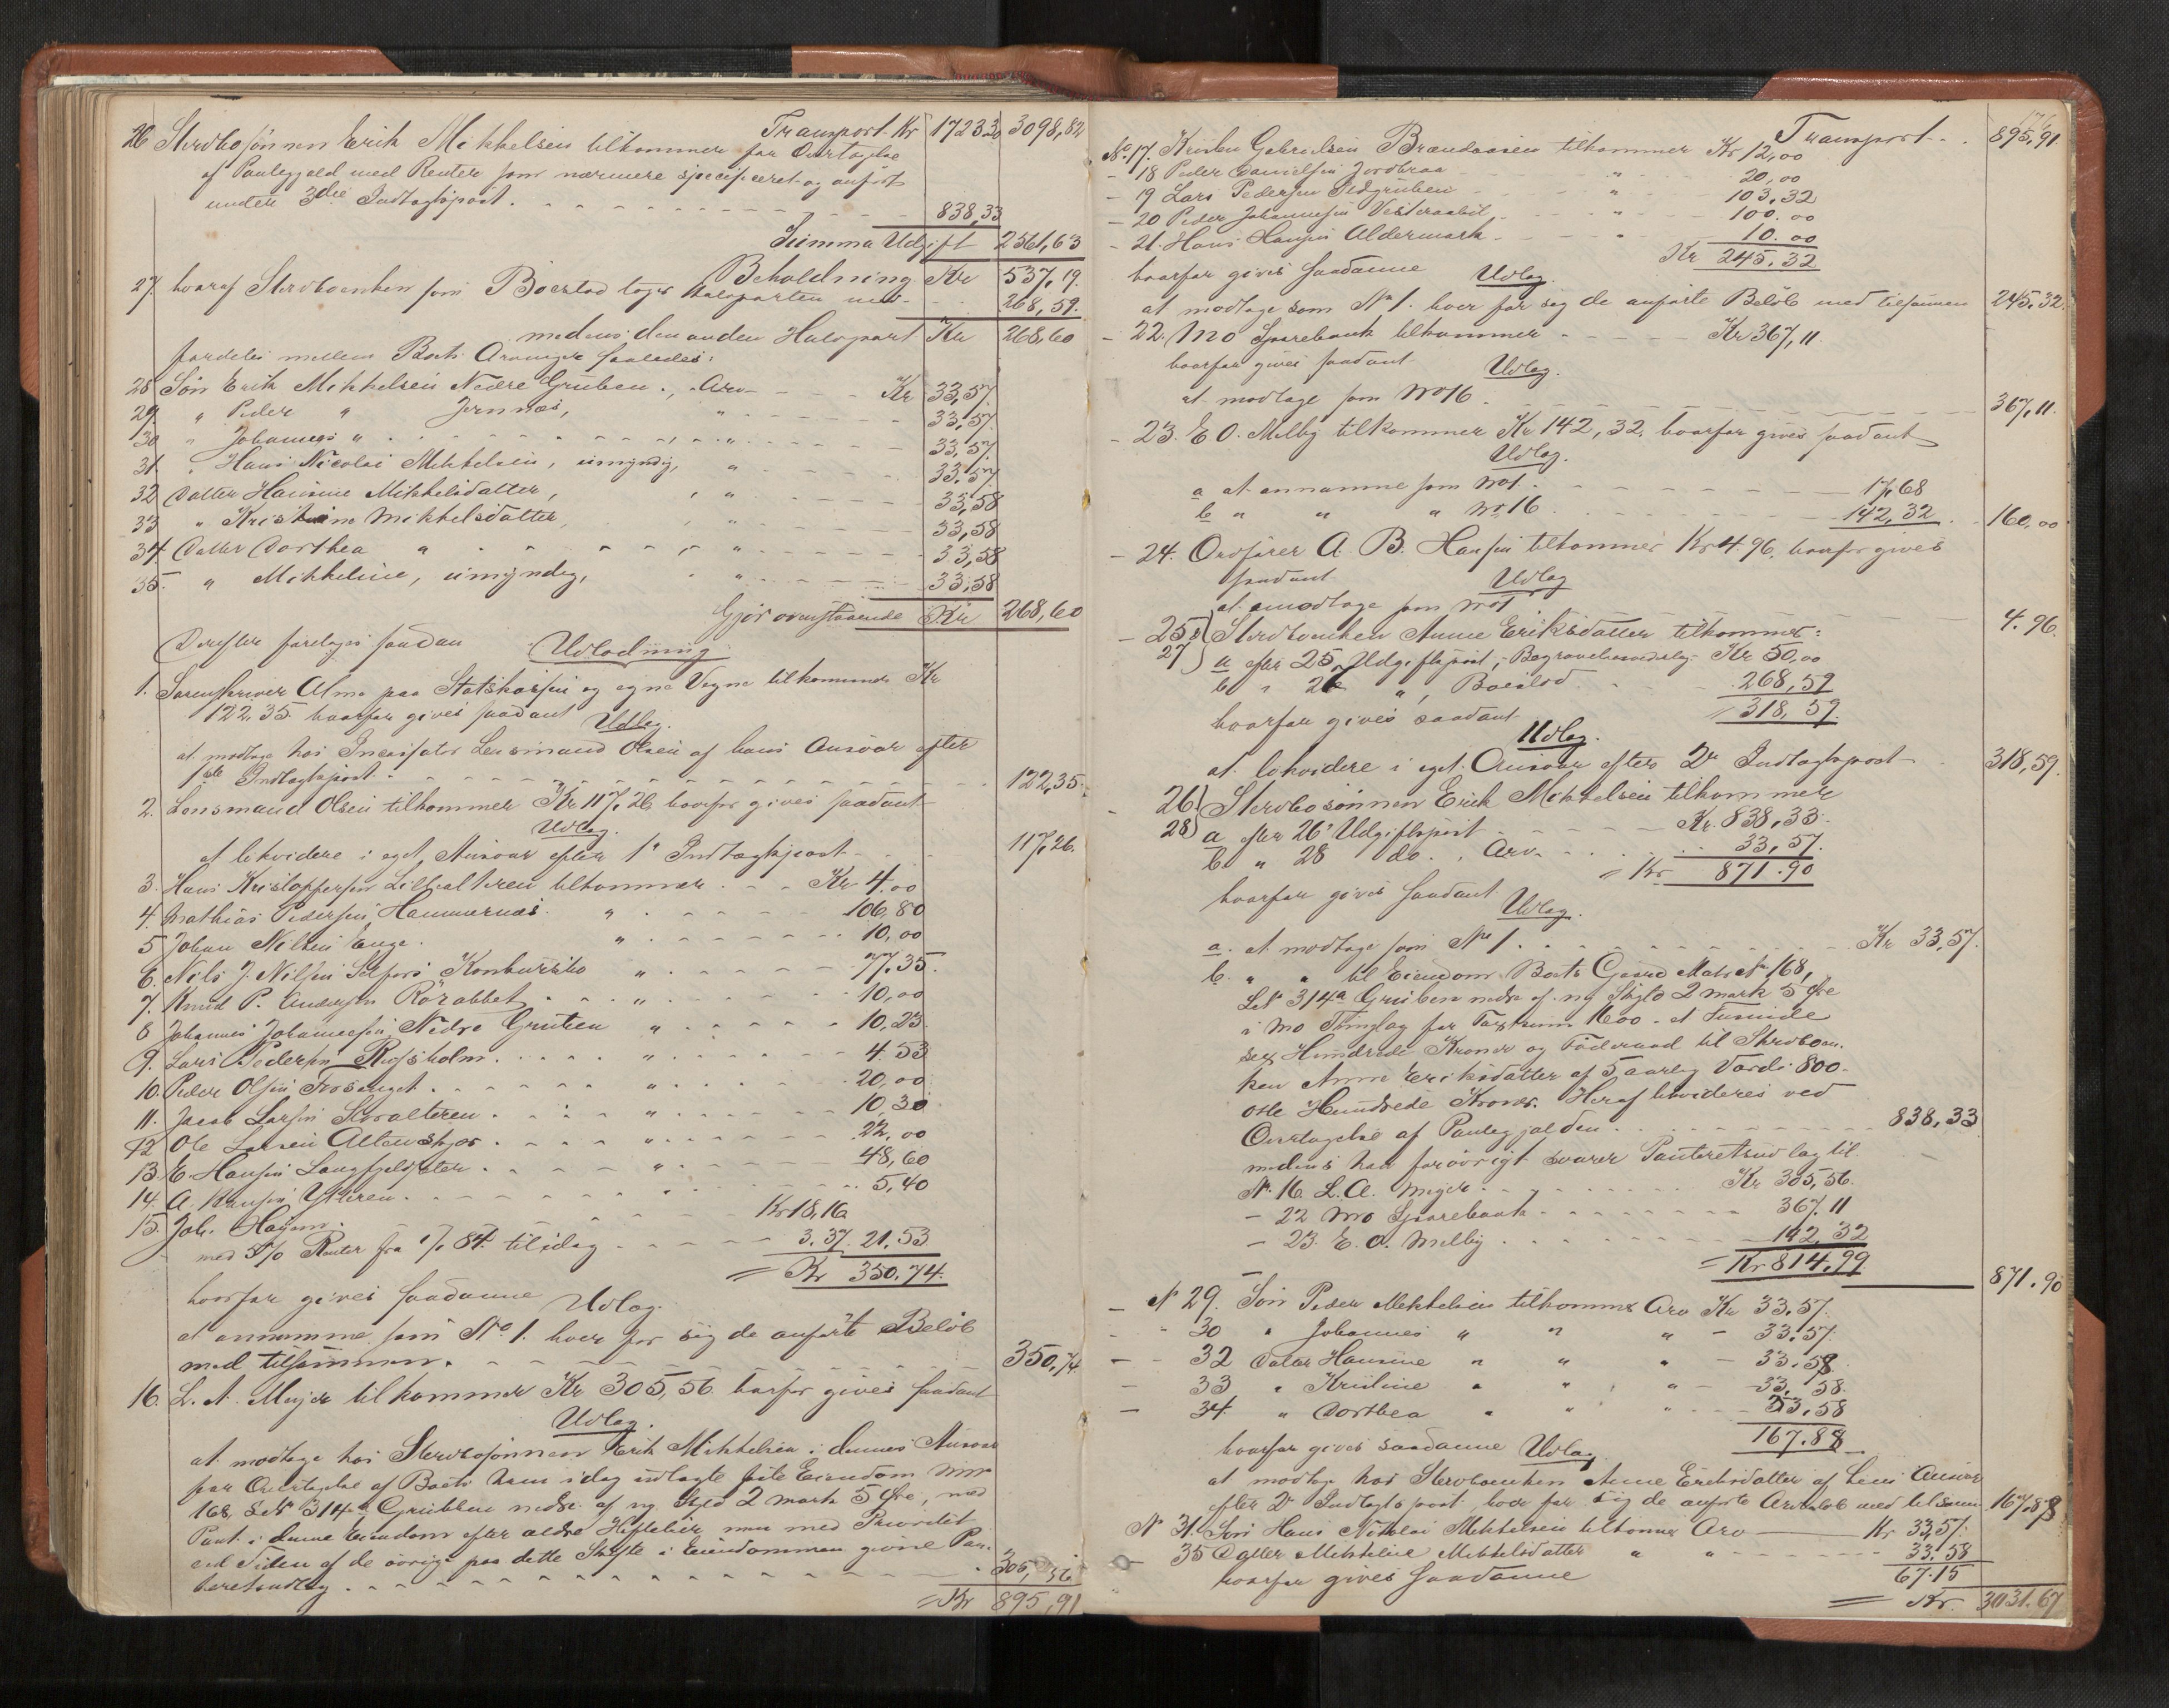 Transport Kr 1723,30 3098,82
26 Stervbosønnen Erik Mikkelsen tilkommer for Overtagelse
af Pantegjeld med Renter som nærmere specificeret og anført
under 3die Indtægtspost. 838,33
Summa Udgift 2561,63
Beholdning Kr 537,19.
27. hvoraf Stervboenken som Boeslod tager Halvparten med 268,59.
medens den anden Halvpart Kr 268,60
fordeles mellem Boets Arvinger saaledes:
28 Søn Erik Mikkelsen Nedre Gruben, Arv Kr 33,57.
29. " Peder " Jernnæs, " 33,57.
30 " Johannes " " 33,57.
31. " Hans Nicolai Mikkelsen, umyndig, " 33.57
32 Datter Hansine Mikkelsdatter, " 33,58
33 " Kristine Mikkelsdatter, " 33,58
34. Datter Dorthea " " 33,58
35. " Mikkeline, umyndig, " 33,58
Gjør ovenstaaende Kr 268,60
Derefter foretages saadan Udlodning
1. Sorenskriver Alme paa Statskassens og egne Vegne tilkommende Kr
122,35. hvorfor gives saadant Udlæg.
at modtage hos Incassator Lensmand Olsen af hans Ansvar efter
1ste Indtægtspost. 122,35.
2. Lensmand Olsen tilkommer Kr 117,26 hvorfor gives saadant
Udlæg.
at likvidere i eget Ansvar efter 1e Indtægtspost 117,26.
3. Hans Kristoffersen Lillealteren tilkommer Kr 4.00
4. Mathias Pedersen Hammernæs. " 106,80
5 Johan Nilsen Enge. " 10,00
6. Nils J. Nilsen Selfors Konkursbo " 77.35.
7. Knud P. Andersen Rørabbet " 10,00
8 Johannes Johannesen Nedre Gruben " 10,23.
9. Lars Pedersen Rossholm. " 4.53
10. Peder Olsen 20,00
11. Jacob Larsen Storalteren. " 10,30
12 Ole Larsen " 22,00
13. E. Hansen Langfjeldsæter " 48,60
14. A. Hansen Ytteren. 5,40
15. Joh. Hagen. Kr 18,16
med 5% Renter fra 1/1 84. til idag 3.37. 21,53
= Kr 350.74.
hvorfor gives saadanne Udlæg.
at annamme som No 1. hver for sig de anførte Beløb
med tilsammen. 350,74
16. L. A. Meyer tilkommer Kr 305,56. hvorfor gives saadant
Udlæg.
at modtage hos Stervbosønnen Erik Mikkelsen i dennes Ansvar
for Overtagelse af Boets ham idag udlagte faste Eiendom Mno
168, L.No 314a Gruben nedre af ny Skyld 2 mark 5 Øre, med
Pant i denne Eiendom efter ældre Heftelser, men med Prioritet
ved Siden af de øvrige paa dette Skifte i Eiendommen givne Pan-
teretsudlæg. 305,56
= Kr 895,91
176
Transport 895,91.
No 17. Kristen Gabrielsen Brændaasen tilkommer Kr 12,00
- 18 Peder Danielsen Jordbraa " 20,00
- 19 Lars Pedersen " 103,32
- 20 Peder Johannesen " 100.00
- 21. Hans Hansen Aldermark " 10.00
Kr 245.32
hvorfor gives saadanne Udlæg
at modtage som No 1. hver for sig de anførte Beløb med tilsammen 245.32.
- 22. Mo Sparebank tilkommer Kr 367,11.
hvorfor gives saadant Udlæg.
at modtage som No 16. 367,11.
- 23. E. O. Melby tilkommer Kr 142,32. hvorfor gives saadant
Udlæg.
a at annamme som No 1. 17,68
b " " " No 16. 142,32. 160,00
- 24. Ordfører A. B. Hansen tilkommer Kr 4.96. hvorfor gives
saadant Udlæg
at modtage som No 1 4.96.
- 25 27 Stervboenken Anne Eriksdatter tilkommer:
a efter 25. Udgiftspost, Begravelsesudlæg Kr 50,00
b " 27 ", Boeslod 268,59
= 318,59.
hvorfor gives saadant Udlæg.
at likvidere i eget Ansvar efter 2n Indtægtspost 318,59.
- 26 28 Stervbosønnen Erik Mikkelsen tilkommer
a efter 26e Udgiftspost Kr. 838,33.
b " 28 do. , Arv 33,57.
= Kr 871.90
hvorfor gives saadant Udlæg.
a. at modtage som No 1. Kr 33,57.
b. " " til Eiendom Boets Gaard Matr No 168,
L.No 314a Gruben nedre af ny Skyld 2 mark 5 Øre
i Mo Thinglag for Taxtsum 1600 - et Tusinde
sex Hundrede Kroner og Føderaad til Stervboen-
ken Anne Eriksdatter af 5 aarlig Værdi 800 -
otte Hundrede Kroner. Heraf likvideres ved
Overtagelse af Pantegjælden 838,33
medens han forøvrigt svarer Panteretsudlæg til
No 16 L. A. Meyer Kr 305,56.
- 22 Mo Sparebank 367.11
- 23. E. O. Melby 142,32
= Kr 814,99. 871.90
- No 29. Søn Peder Mikkelsen tilkommer Arv Kr 33.57.
- - 30 " Johannes " " " - 33.57.
- - 32 Datter Hansine " " " - 33.58.
- 33 " Kristine " " " - 33.58.
- 34 " Dorthea " " " - 33.58
167.88
hvorfor gives saadanne Udlæg
at modtage hos Stervboenken Anne Eriksdatter af hens Ansvar
efter 2n Indtægtspost hver for sig de anførte Arvebeløb med tilsam. 167,88
No 31. Søn Hans Nikolai Mikkelsen tilkommer Arv Kr 33,57.
- 35 Datter Mikkeline Mikkelsdatter " " 33.58
67.15
hvorfor gives saadanne
= Kr. 3031.67